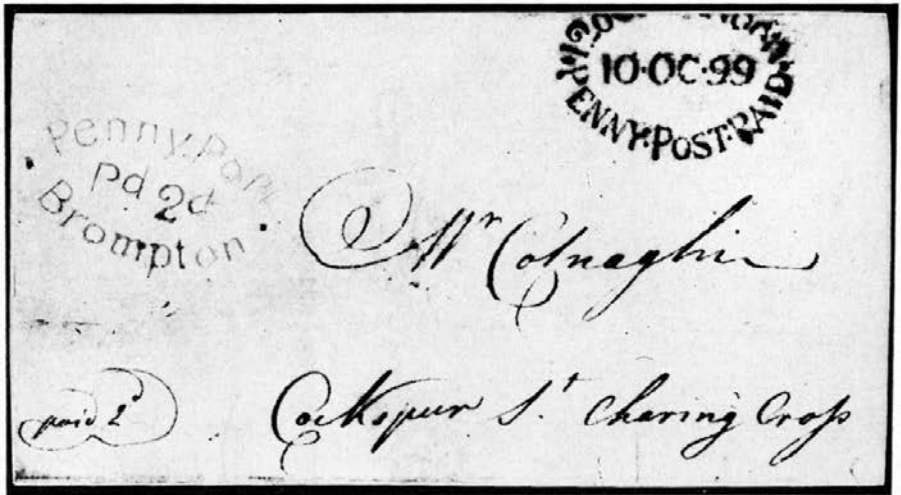 10·OC·99
PENNY·POST·PAID
Penny.Post
Pd 2d
Brompton
Mr Colnaghi
paid 2d
Cockspur St Charing Cross